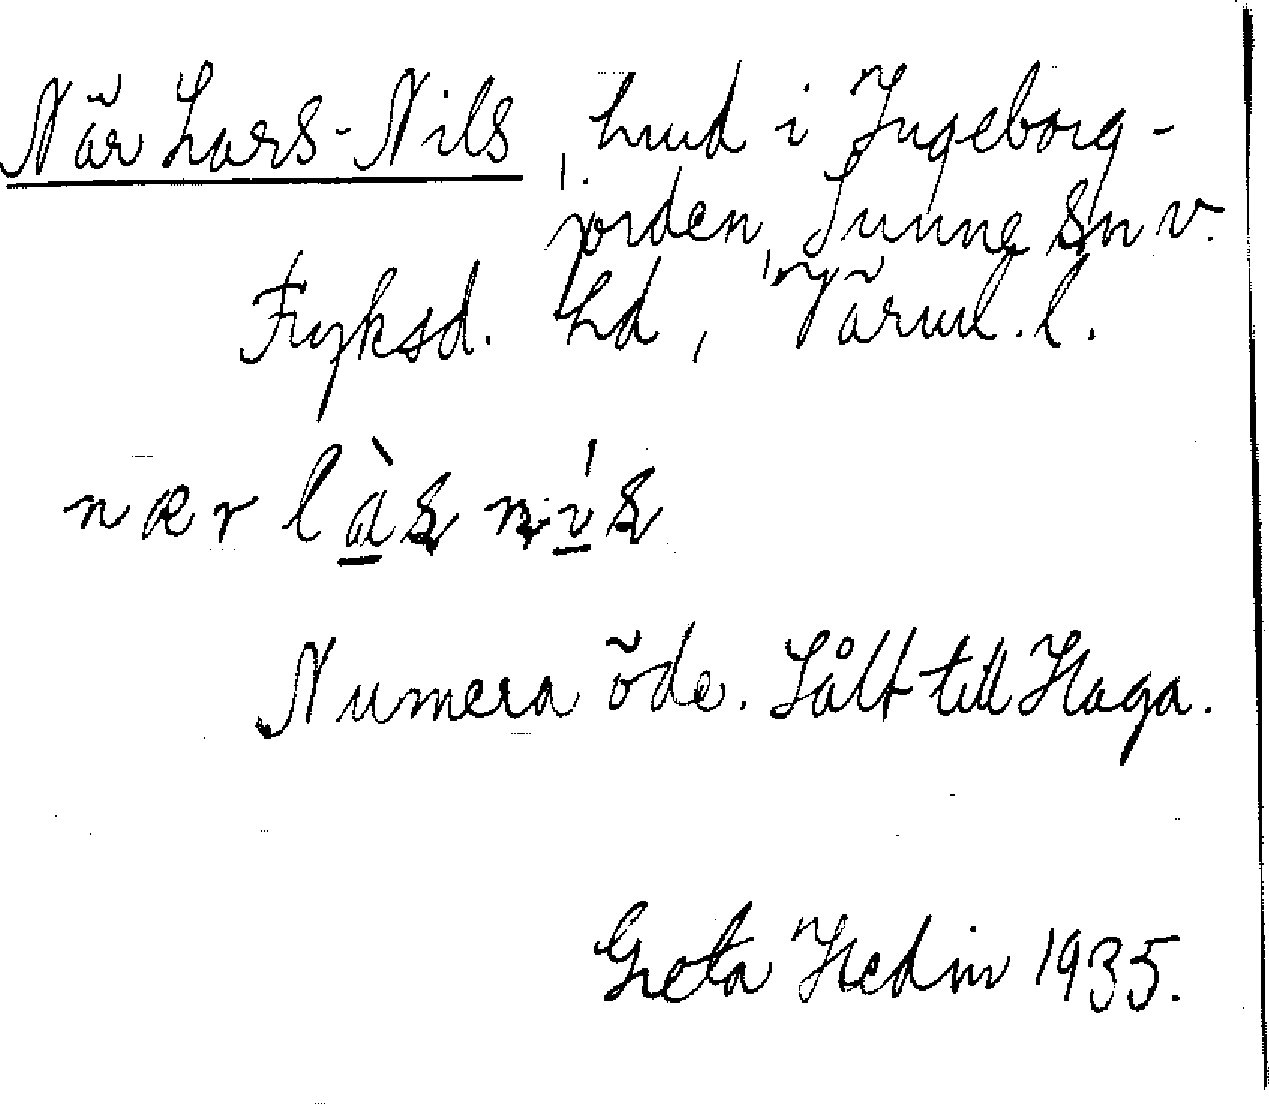 När Lars-Nils, hmd i Ingeborg-
jorden, Sunne sn v.
Fryksd. hd, Värml. l.
nær làs
Numera öde. Sålt till Haga.
Greta Hedin 1935.